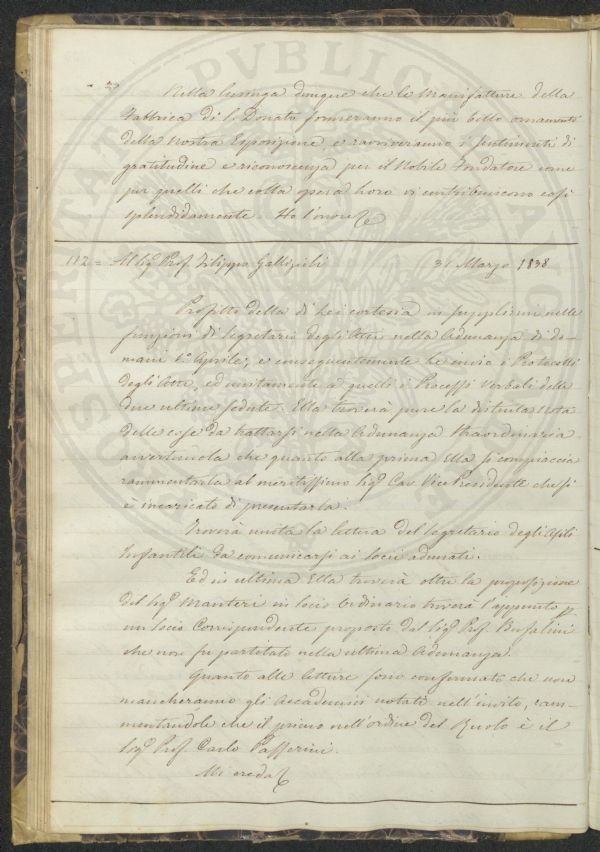 Nella lusinga dunque che le Manifatture della
Fabbrica di S. Donato formeranno il più bello ornamento
della nostra Esposizione e ravviveranno i sentimenti di
gratitudine e riconoscenza per il Nobile Fondatore come
per quelli che colla opera loro vi contribuiscono così
splendidamente. Ho l'onore
112 = Al Sigr Prof. Filippo Gallizioli 31 Marzo 1838
Profitto della di Lei cortesia in supplirmi nelle
funzioni di Segretario degli Atti nella Adunanza di do-
mani 1o Aprile; e conseguentemente Le invio i Protocolli
degli Atti, ed unitamente a quelli i Processi Verbali delle
due ultime sedute. Ella troverà pure la distinta nota
delle cose da trattarsi nella Adunanza straordinaria
avvertendola che quanto alla prima Ella si compiaccia
rammentarla al meritissimo Sigr Cav. Vice Presidente che si
è incaricato di presentarla.
Troverà unita la lettera del Segretario degli Asili
Infantili da comunicarsi ai Socii adunati.
Ed in ultima Ella troverà oltre la proposizione
del Sigr Manteri in Socio Ordinario troverà l'appunto p.
un Socio Corrispondente proposto dal Sigr Prof. Bufalini
che non fu partitato nella ultima Adunanza.
Quanto alle letture sono confermato che non
mancheranno gli Accademici notati nell'invito, ram-
mentandole che il primo nell'ordine del Ruolo è il
Sigr Prof. Carlo Passerini.
Mi creda